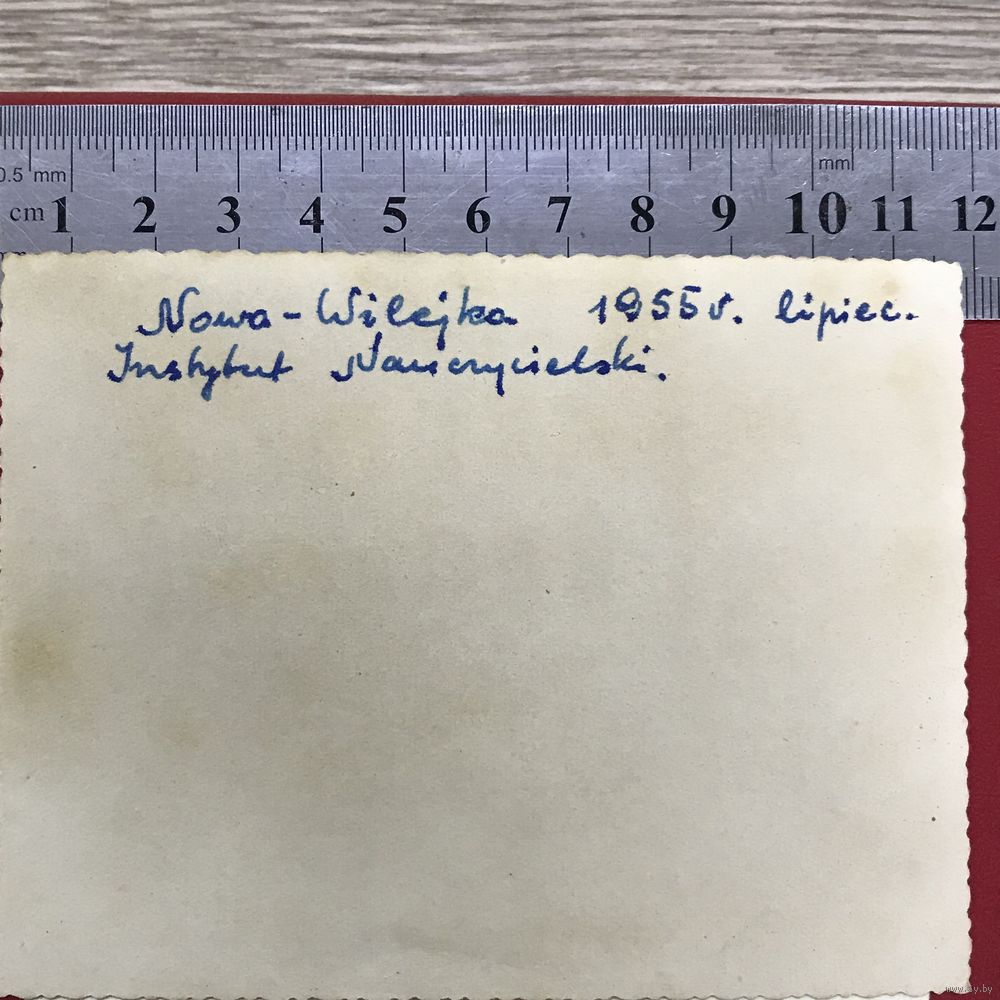 0.5 mm
mm
cm 1 2 3 4 5 6 7 8 9 10 11 12
Nowa-Wilejka 1955 r. lipiec.
Instytut Nauczycielski.